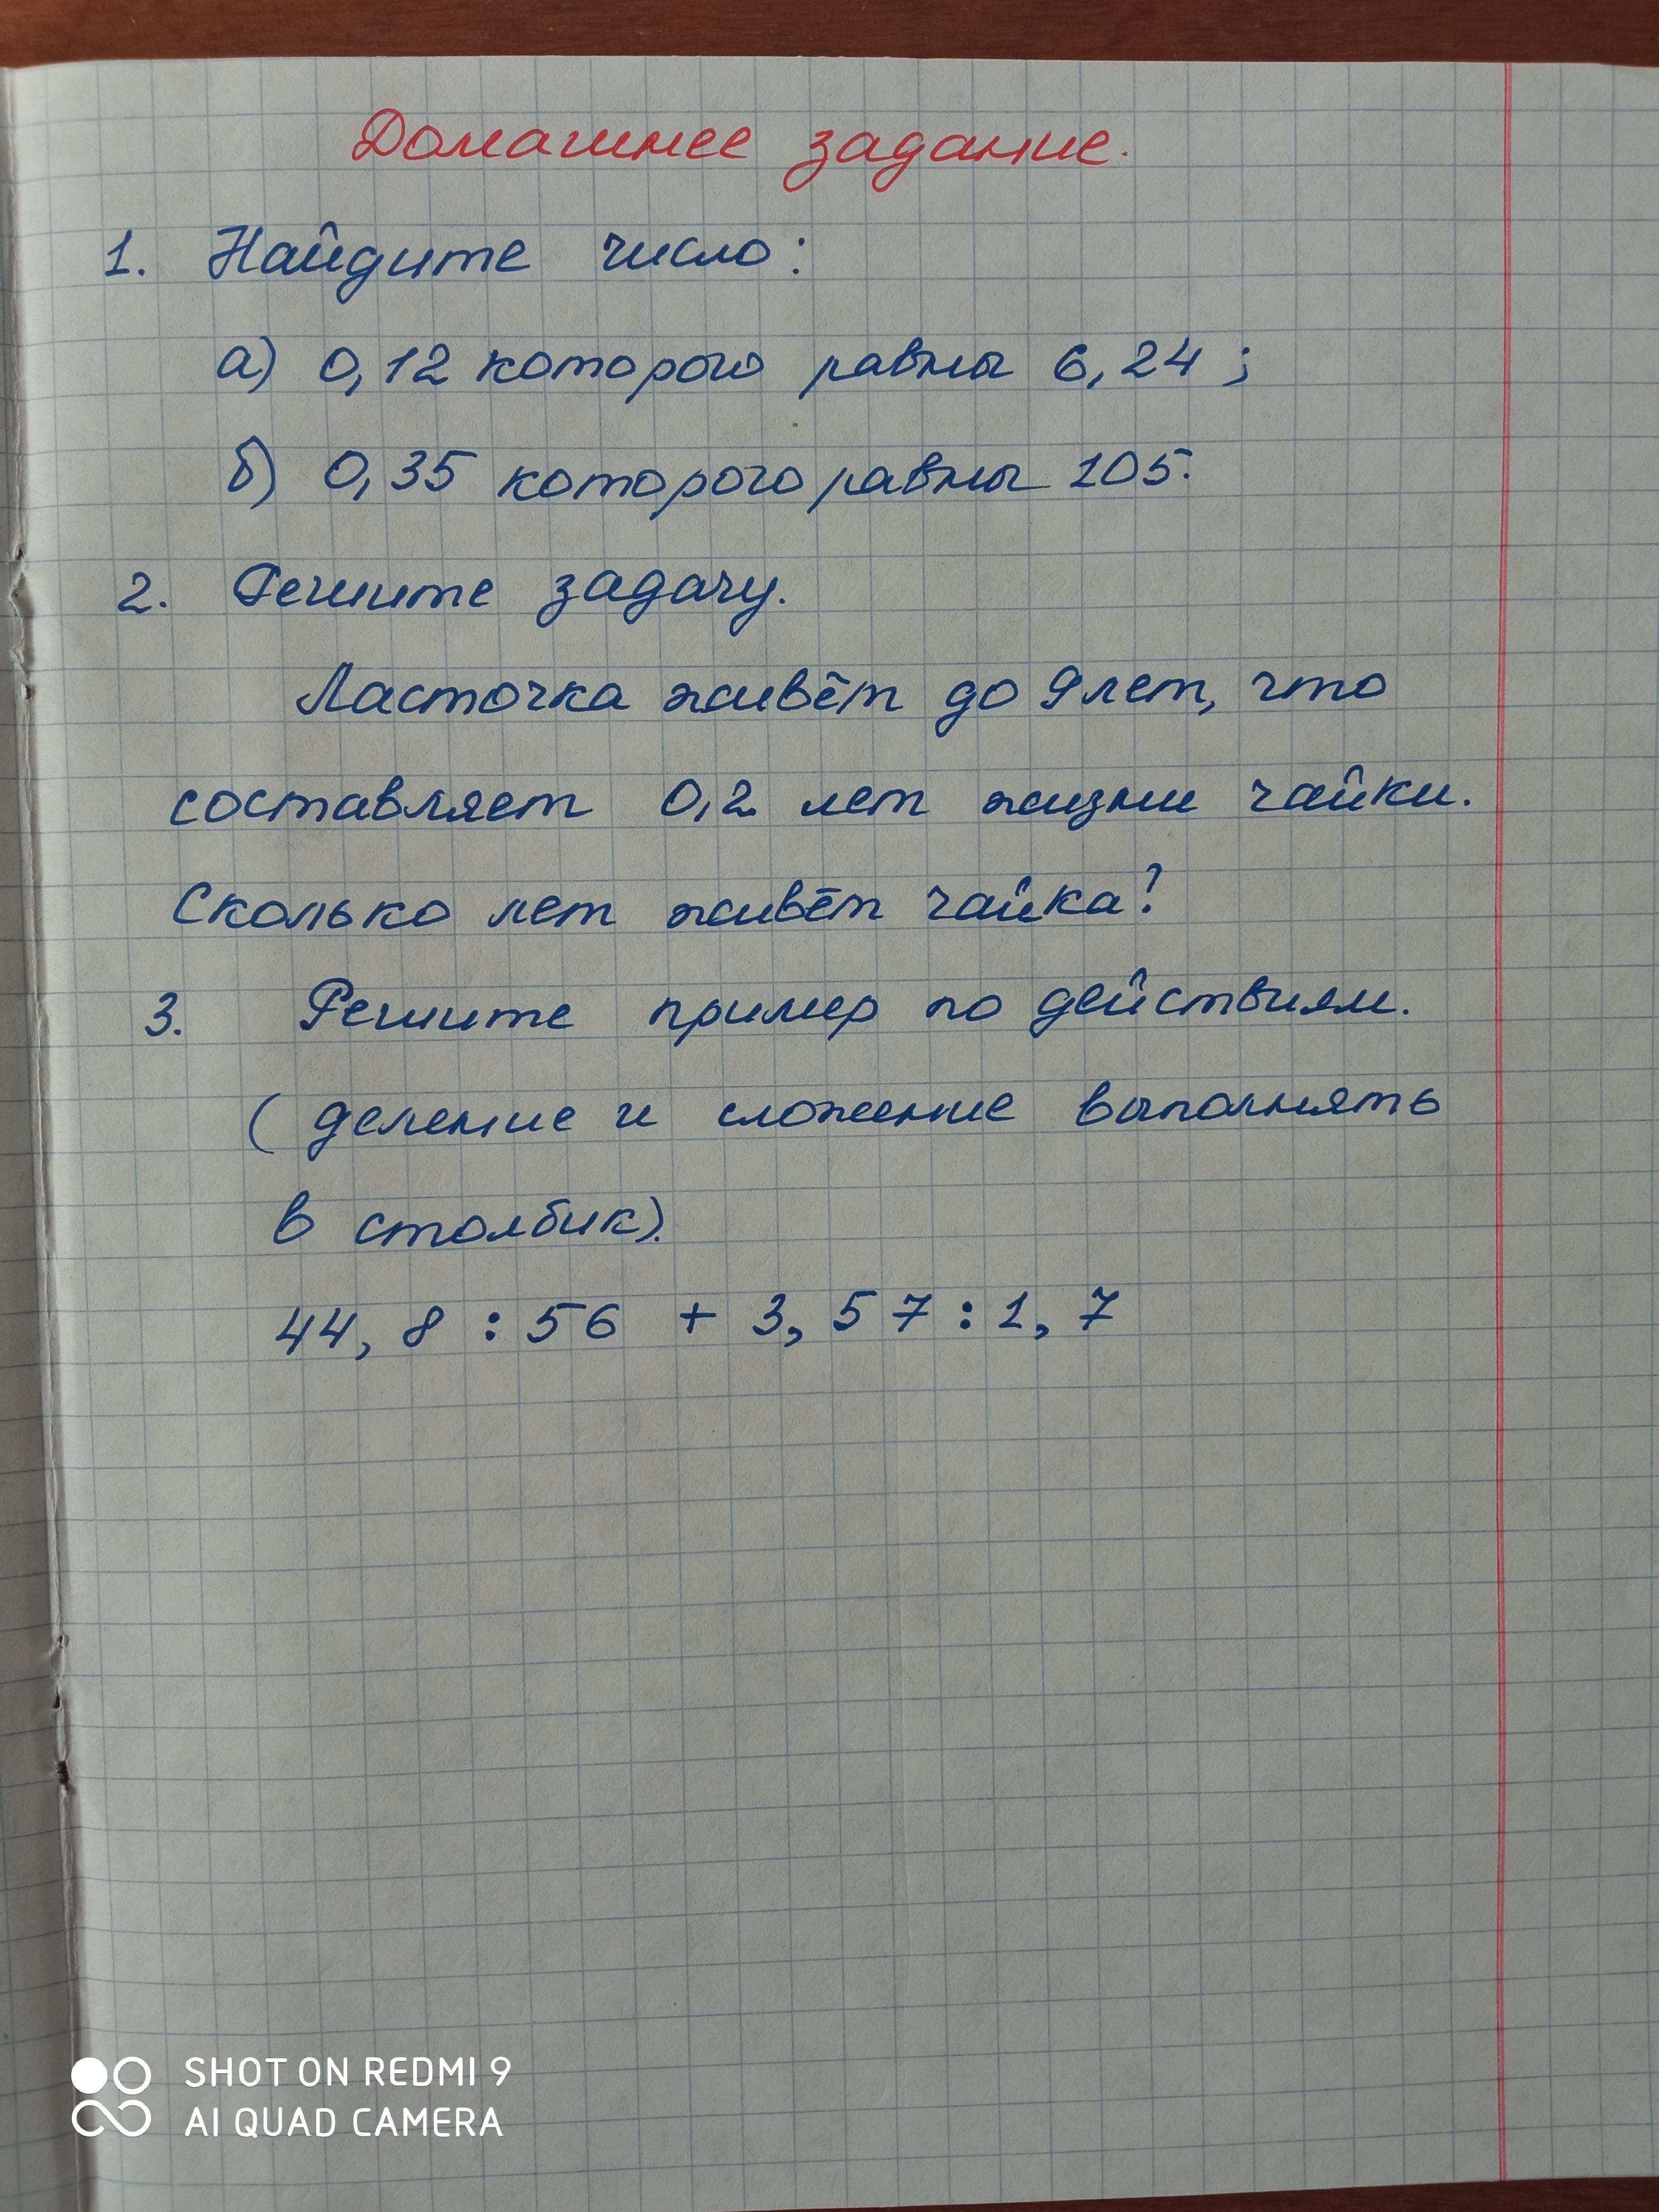 Домашнее задание.
1. Найдите число:
а) 0,12 которого равны 6,24;
б) 0,35 которого равны 105.
2. Решите задачу.
Ласточка живёт до 9 лет, что
составляет 0,2 лет жизни чайки.
Сколько лет живёт чайка?
3. Решите пример по действиям.
(деление и сложение выполнять
в столбик).
44,8 : 56 + 3,57 : 1,7
SHOT ON REDMI 9
AI QUAD CAMERA